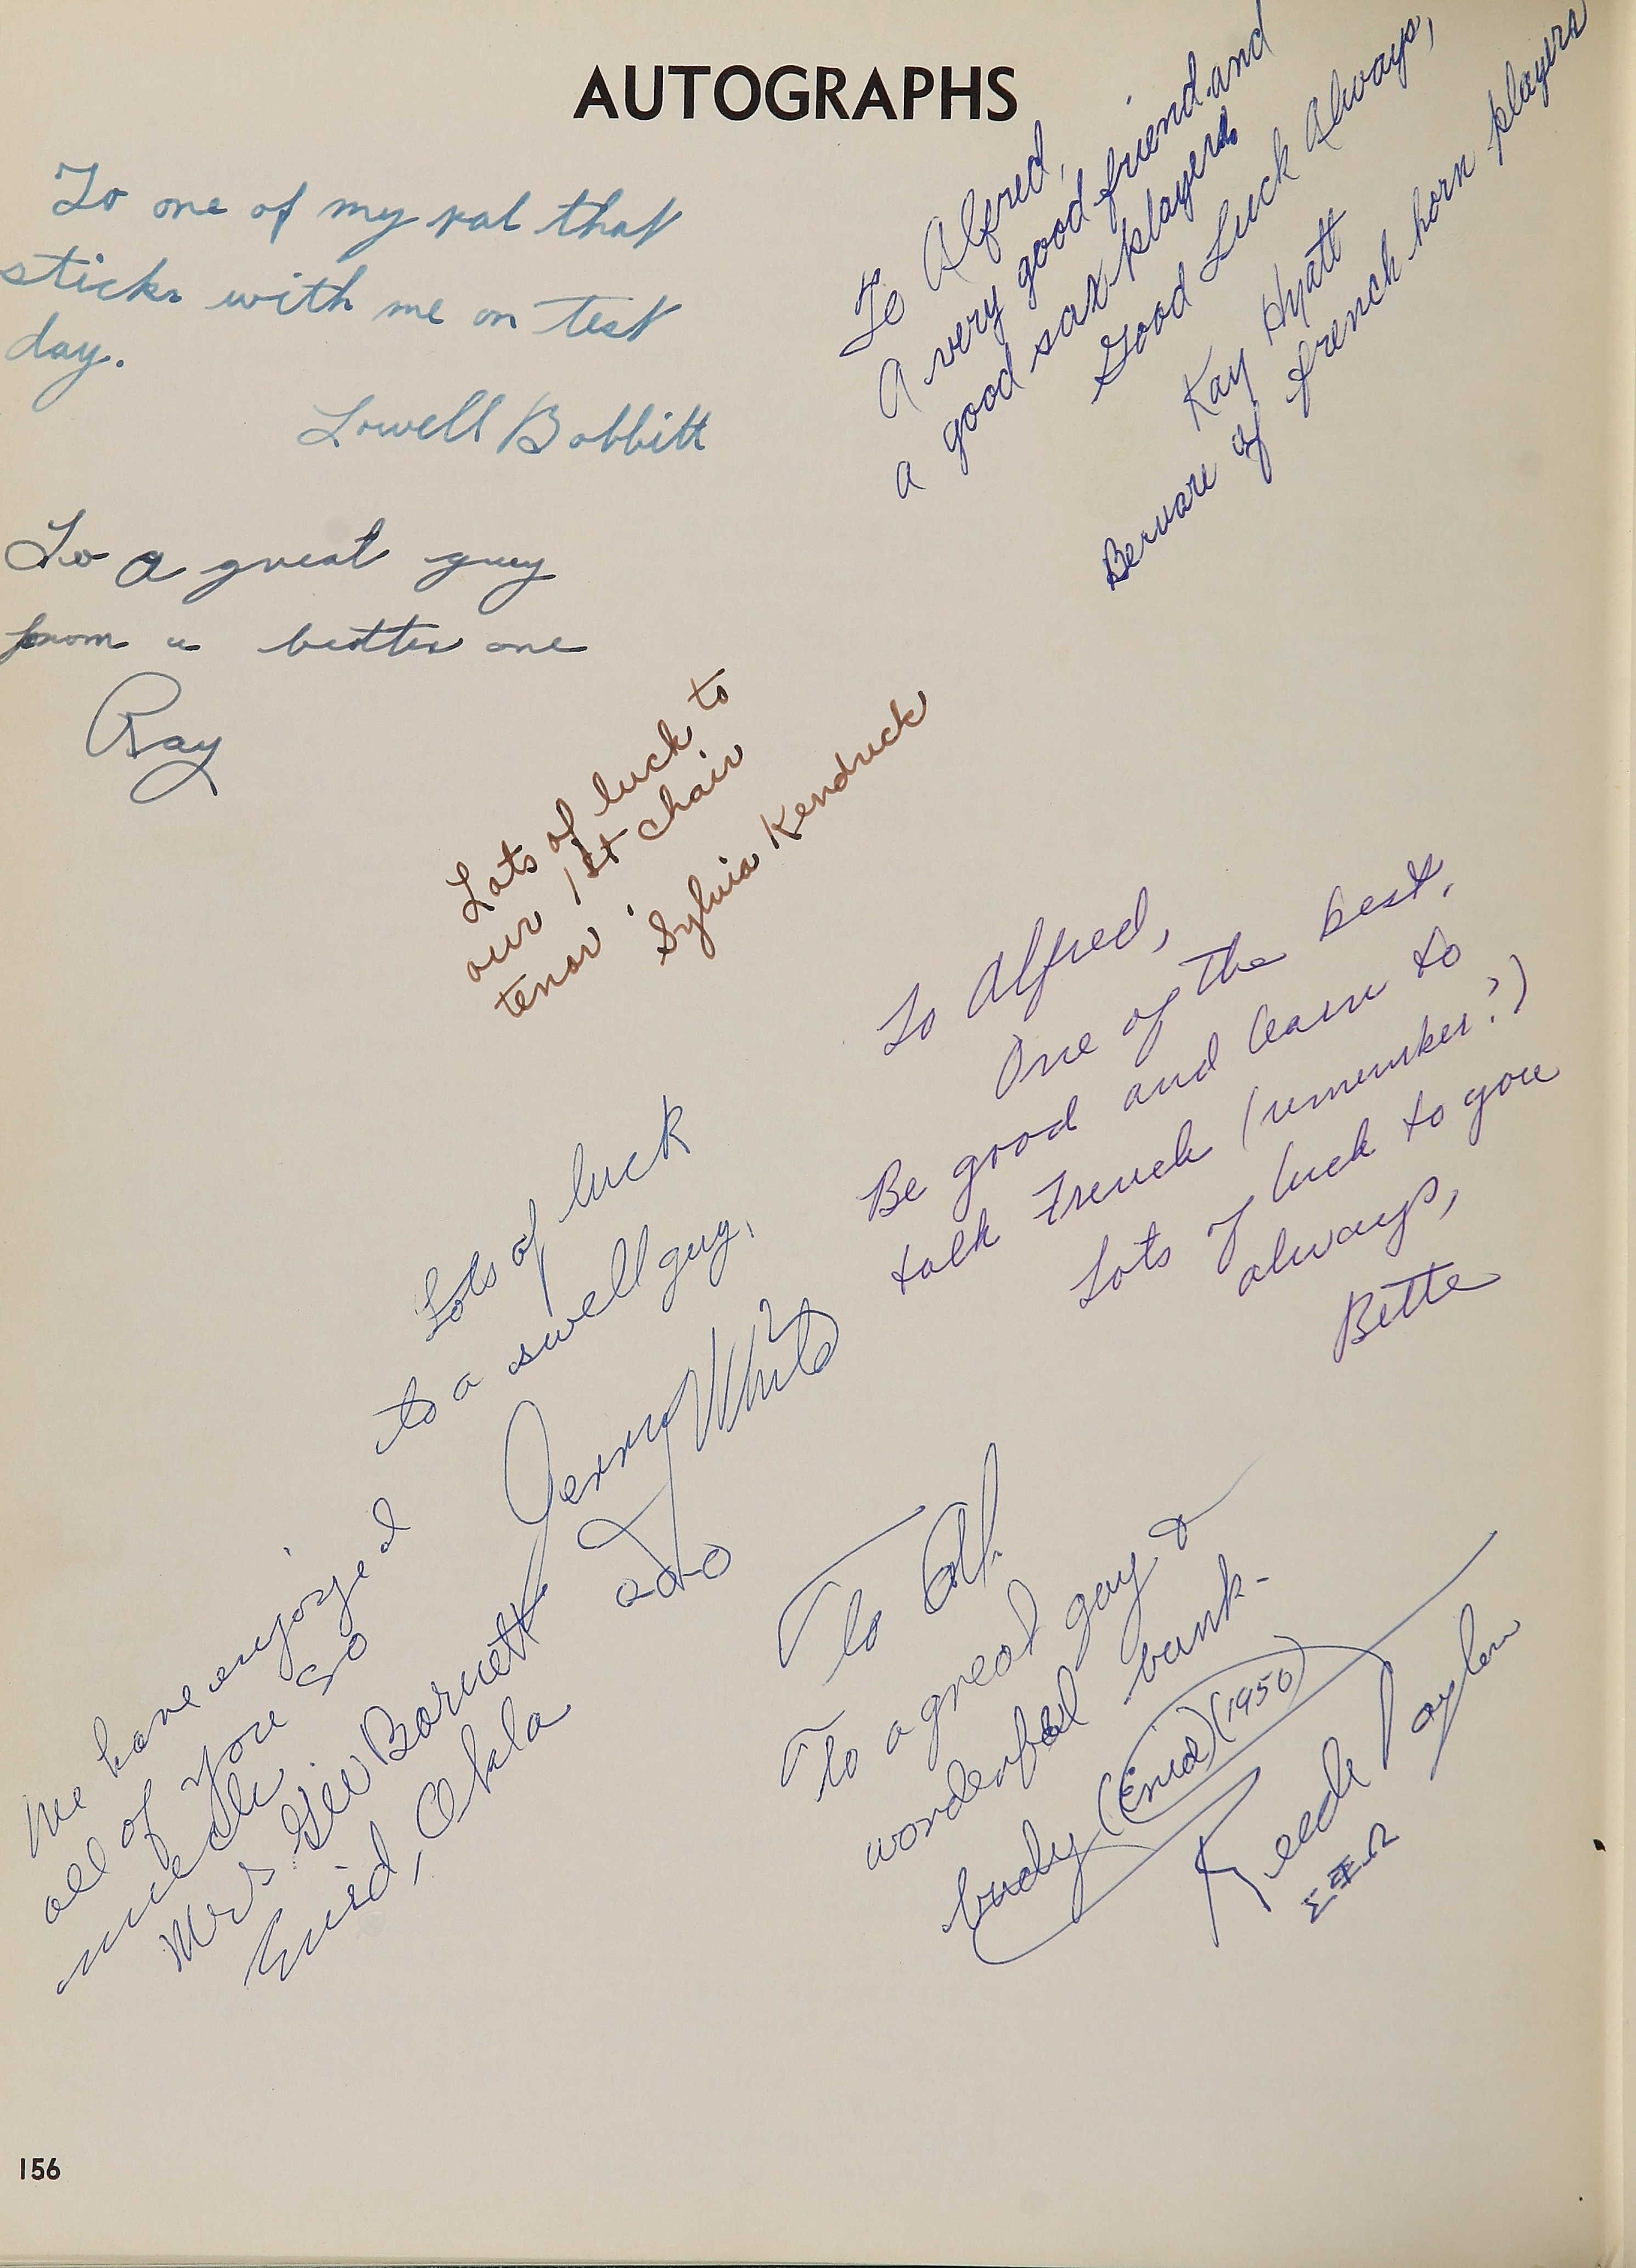 AUTOGRAPHS
To one of my pal that
sticks with me on test
day.
Lowell Bobbitt
To Alfred,
A very good friend and
a good sax player.
Good Luck Always,
Kay Hyatt
Beware of french horn players
To a great guy
from a better one
Ray
Lots of luck to
our 1st chair
tenor
Sylvia Kendrick
To Alfred,
One of the best.
Be good and learn to
talk French (remember?)
Lots of luck to you
always,
Bette
Lots of luck
to a swell guy,
Jerry White
We have enjoyed
all of you so
much
Mrs Barnett
Enid, Okla
To Alf.
To a great guy &
wonderful bunk-
budy (Enid) (1950)
Reede
ΣΦΩ
156